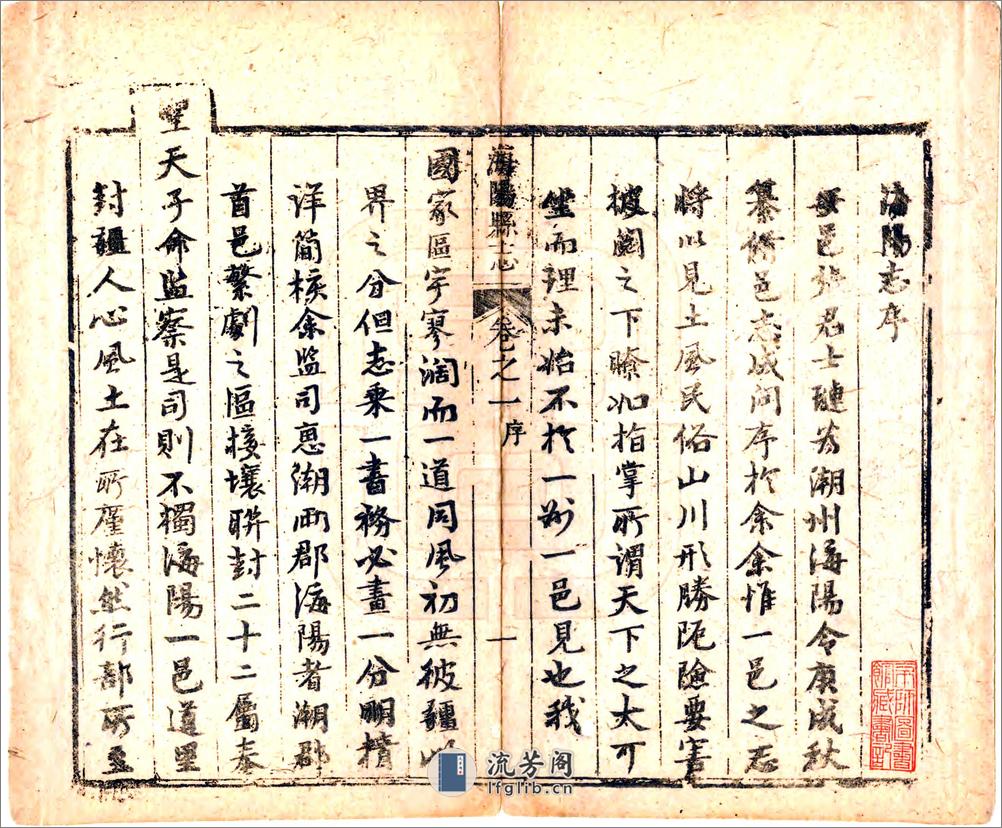 海陽志序
吾邑張君士璉為潮州海陽令庚戌秋
纂脩邑志成問序於余余惟一邑之志
將以見土風民俗山川形勝阨險要害
披閱之下瞭如指掌所謂天下之大可
坐而理未始不於一郡一邑見也我
海陽縣志 卷之一 序 一
國家區宇寥濶而一道同風初無彼疆此
界之分但志乗一書務必畫一分明精
详簡核余监司惠潮两郡海陽者潮郡
首邑繁劇之區接壤聨封二十二屬奉
聖天子命监察是司則不獨海陽一邑道里
封疆人心風土在所廑懷然行部所至
流芳阁
lfglib.cn